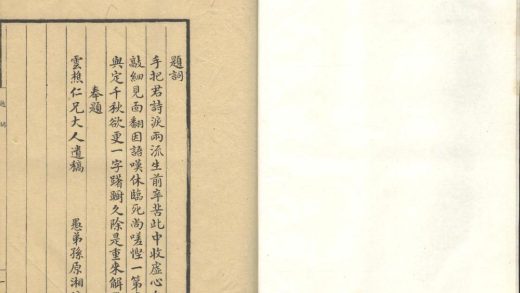 題詞
手把君詩淚兩流生前辛苦此中收虛心
敲細見面翻因語嘆休臨死尚嗟慳一第
與定千秋欲更一字躇躕久除是重來解
奉題
雲樵仁兄大人遺稿 愚弟孫原湘